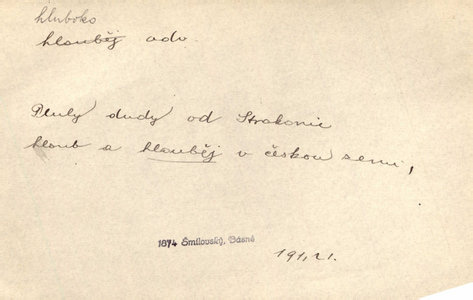 hluboko
hlouběj adv.
Pluly dudy od Strakonic
hloub a hlouběj v českou zemi,
1874 Šmilovský, Básně
191,21.